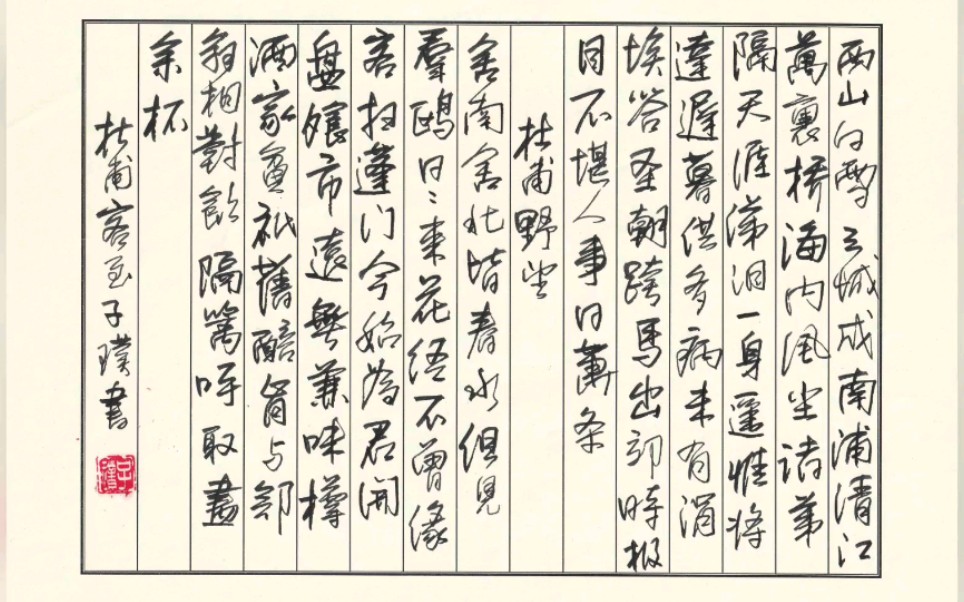 西山白雪三城戍南浦清江
萬裏橋海内風尘诸弟
隔天涯涕泪一身遥惟将
達遲暮供多病未有涓
埃答圣朝跨馬出郊時极
目不堪人事日蕭条
杜甫野望
舍南舍北皆春水但見
羣鷗日〻來花径不曾缘
客扫蓬门今始為君開
盤飧市遠無兼味樽
酒家貧衹舊醅肯与鄰
翁相對飲隔篱呼取盡
余杯
杜甫客至子璞書
子璞